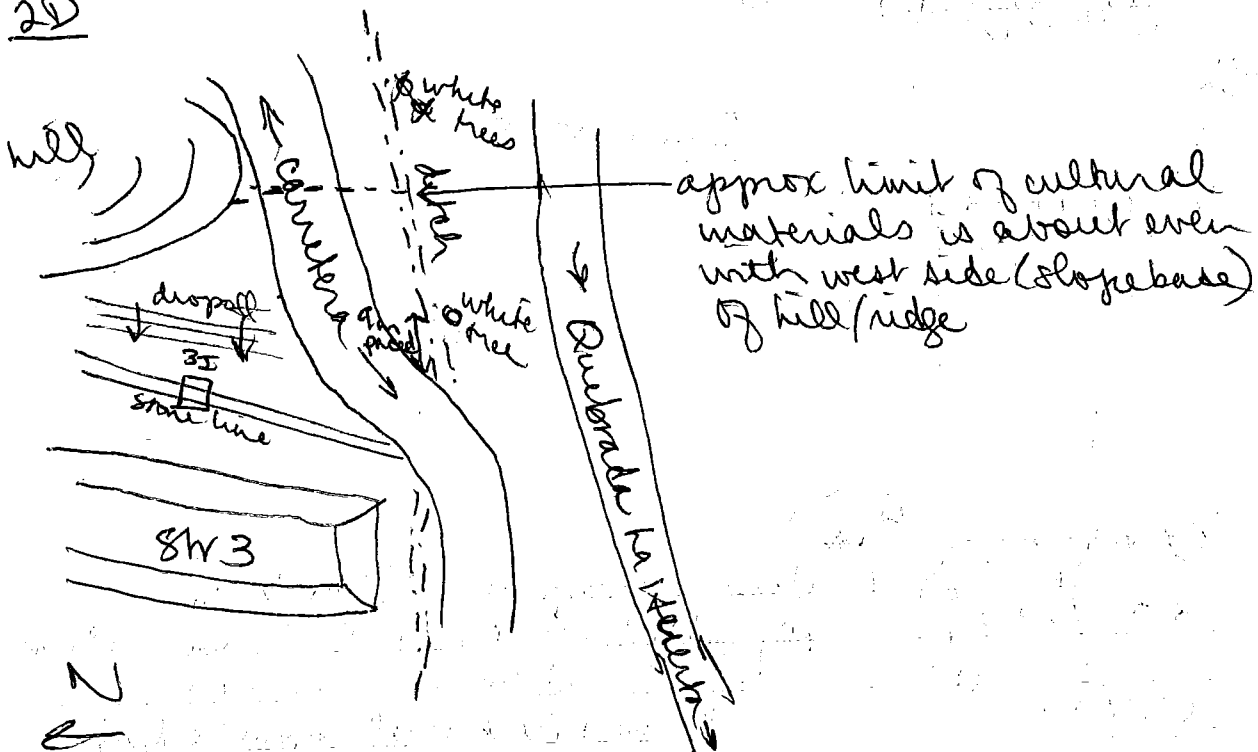 2D
hill
carretera
white
trees
ditch
approx limit of cultural
materials is about even
with west side (slope base)
of hill/ridge
dropoff
white
tree
3I
stone line
8W3
Quebrada La
N